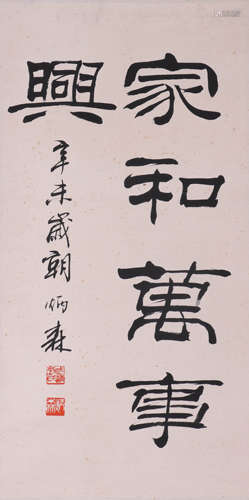 家和萬事
興
辛未歲朝炳森